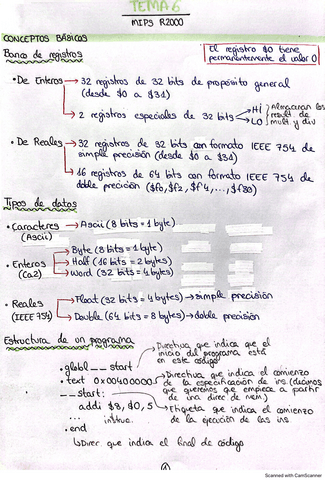 TEMA 6
MIPS R2000
CONCEPTOS BÁSICOS
El registro $0 tiene
permanentemente el valor 0
Banco de registros
• De Enteros → 32 registros de 32 bits de propósito general
(desde $0 a $31)
→ 2 registros especiales de 32 bits → HI
LO
Almacenan los
result. de
mult y div
• De Reales → 32 registros de 32 bits con formato IEEE 754 de
simple precisión (desde $0 a $31)
→ 16 registros de 64 bits con formato IEEE 754 de
doble precisión ($f0, $f2, $f4, ..., $f30)
Tipos de datos
• Caracteres → Ascii (8 bits = 1 byte)
(Ascii)
• Enteros → Byte (8 bits = 1 byte)
(Ca2) → Half (16 bits = 2 byte)
→ Word (32 bits = 4 bytes)
• Reales → Float (32 bits = 4 bytes) → simple precisión
(IEEE 754) → Double (64 bits = 8 bytes) → doble precisión
Estructura de un programa
Directiva que indica que el
inicio del programa está
en este código
.globl __start
.text 0x00400000 → Directiva que indica el comienzo
de la especificación de ins. (decimos
que queremos que empiece a partir
de una direc de mem.)
__start:
addi $8, $0, 5 → Etiqueta que indica el comienzo
... instruc. de la ejecución de las ins
.end
↳ direc que indica el final de código
Scanned with CamScanner